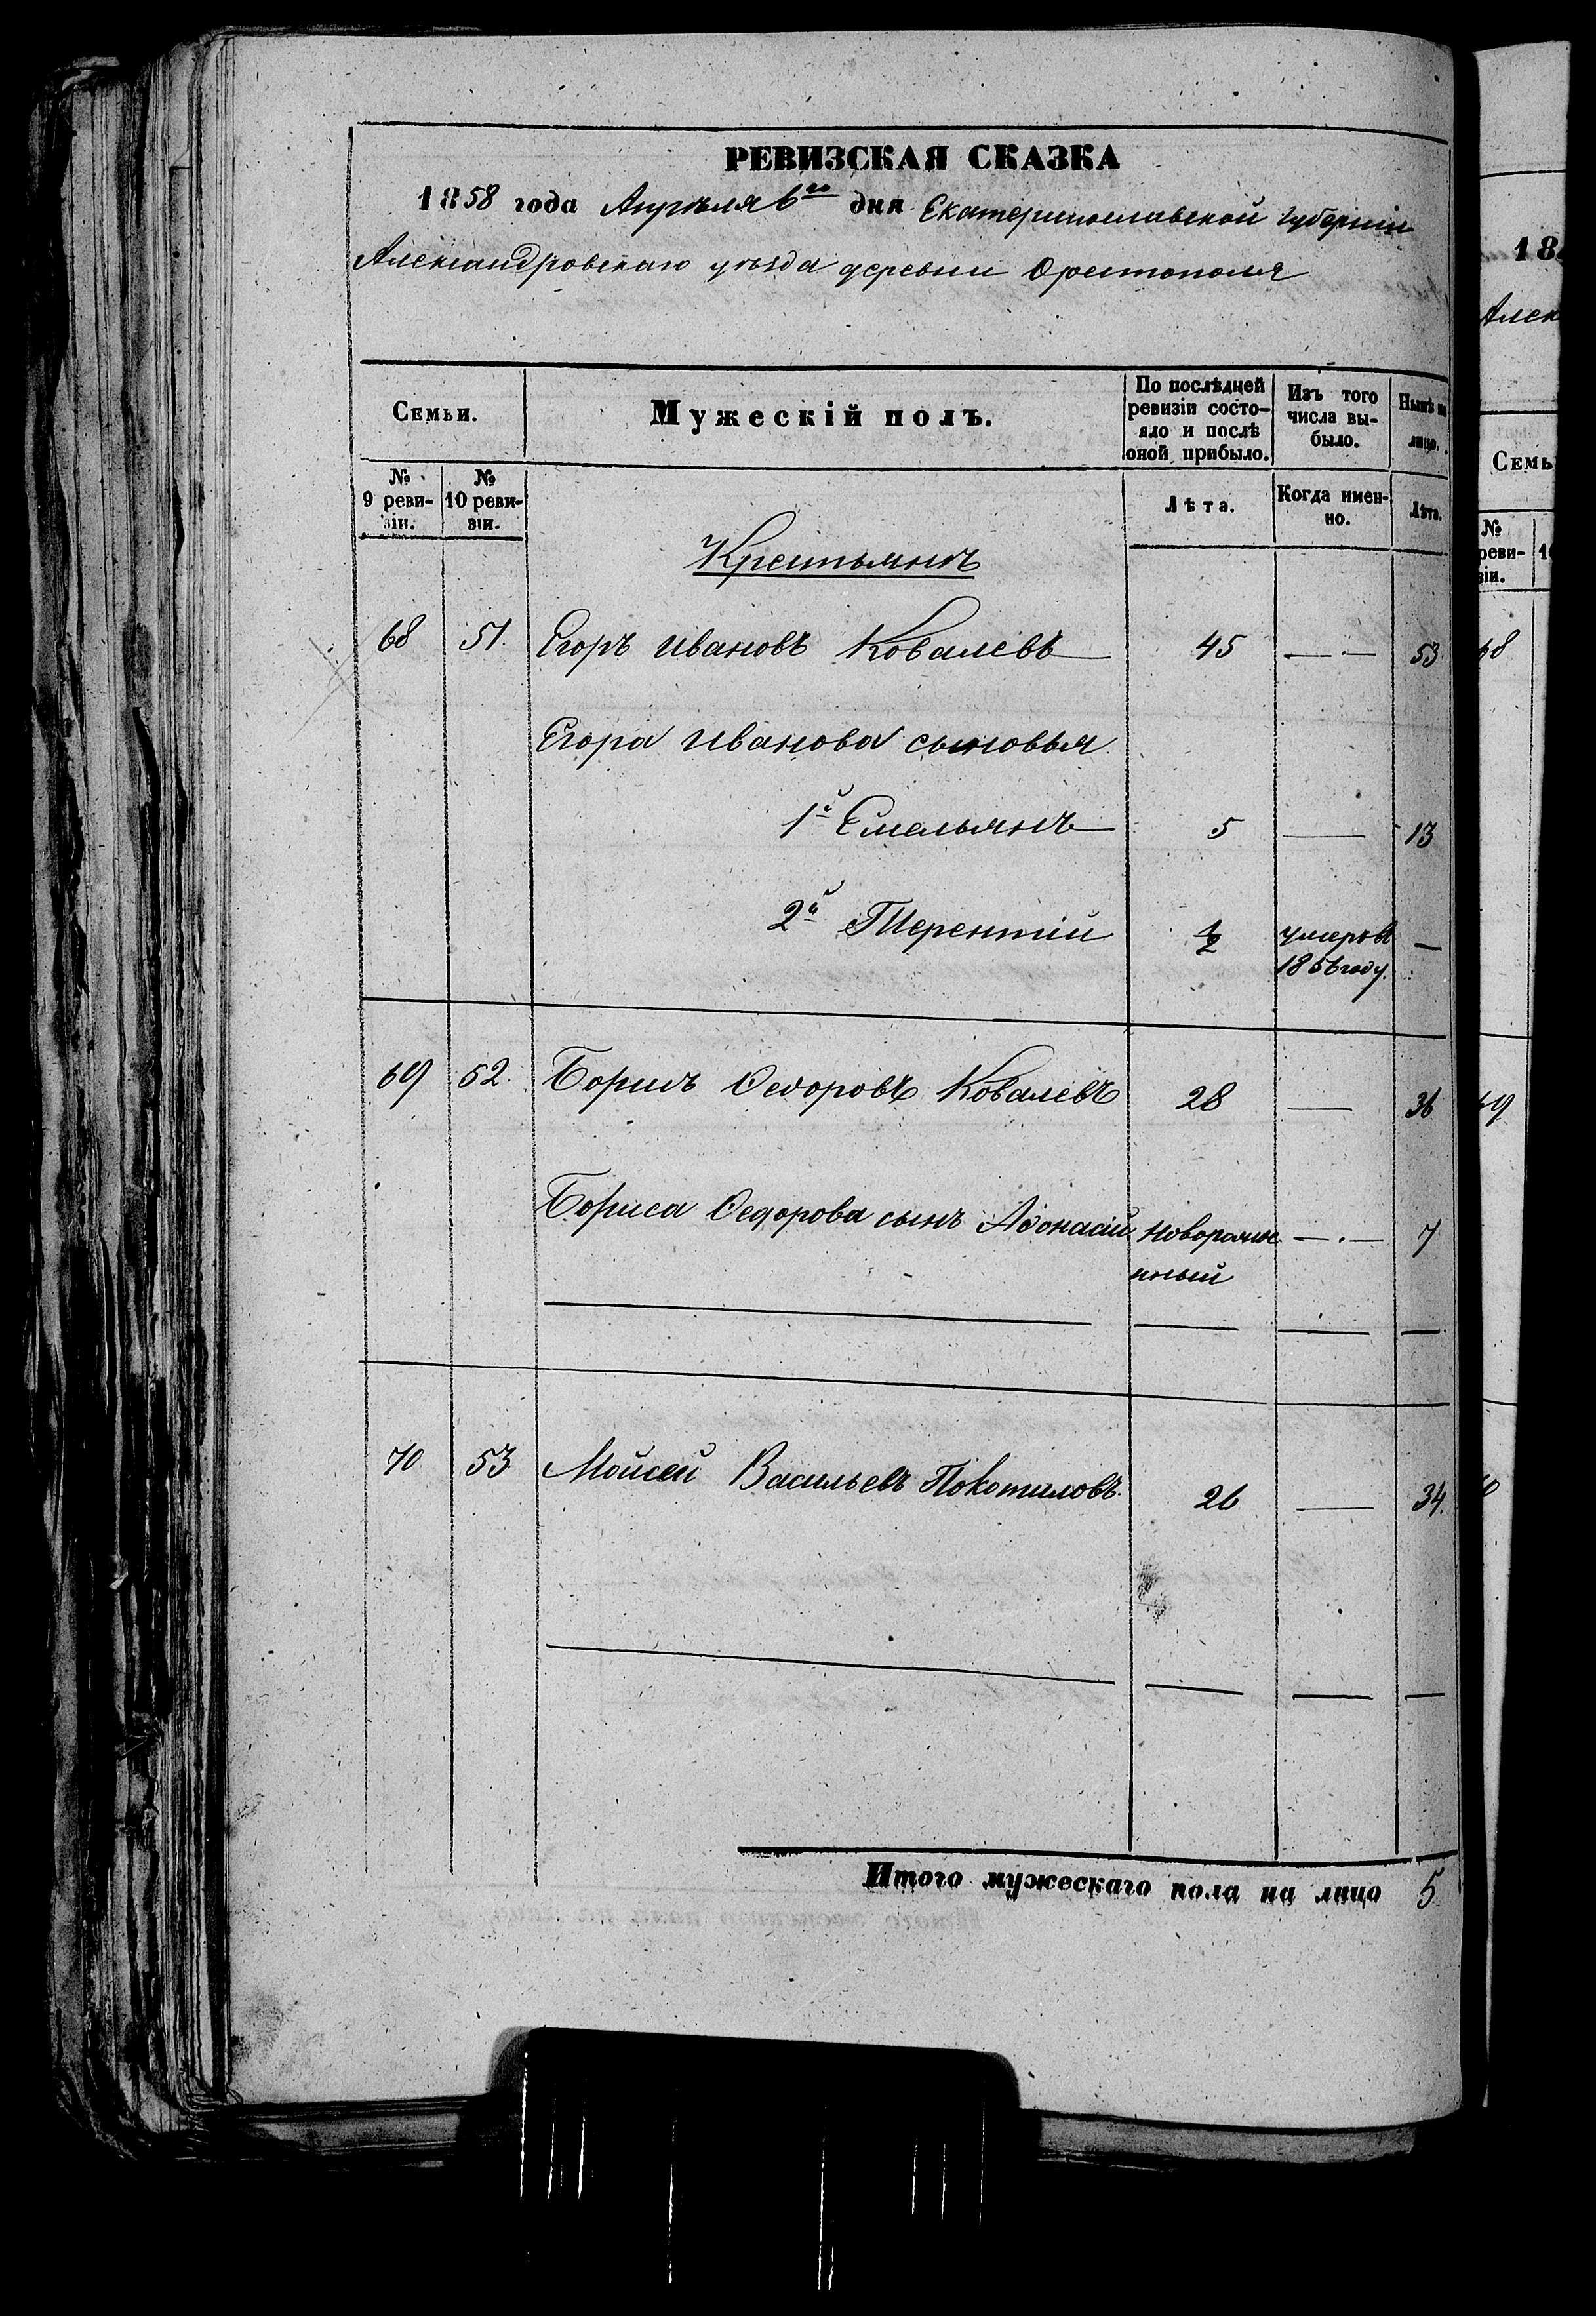 РЕВИЗСКАЯ СКАЗКА
1858 года Апрѣля 6го дня Екатеринославской губерніи
Александровскаго уѣзда деревни Орестополя
Семьи.
Мужескій полъ.
По послѣдней ревизіи состо-
яло и послѣ
оной прибыло.
Изъ того
числа вы-
было.
Нынѣ на
лицо.
№
9 реви-
зіи.
№
10 реви-
зіи.
Лѣта.
Когда имен-
но.
Лѣта.
Крестьянъ
68 51. Егоръ Ивановъ Ковалевъ 45 — — 53
Егора Иванова сыновья
1й Емельянъ 5 — 13
2й Терентій 1/2 умеръ въ —
1856 году.
69 52. Борисъ Ѳедоровъ Ковалевъ 28 — 36
Бориса Ѳедорова сынъ Аѳонасій новорожде — . — 7
нный
70 53 Мойсей Васильевъ Покотиловъ. 26 — 34.
Итого мужескаго пола на лицо 5
18
Алек
Семь
№
реви-
зіи.
1
68
69